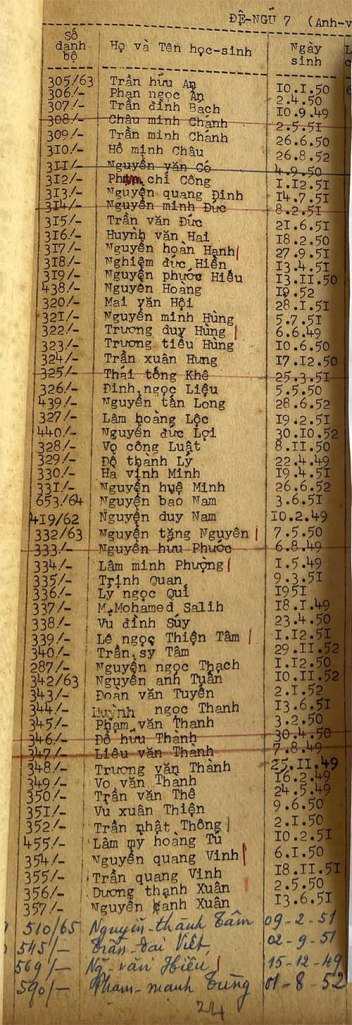 ĐỆ-NGŨ 7 (Anh-v
Số danh bộ Họ và Tên học-sinh Ngày sinh
305/63 Trần hữu An 10.I.50
306/- Phan ngọc Ân 2.4.50
307/- Trần đình Bạch 10.9.49
308/- Châu minh Chánh 2.5.5I
309/- Trần minh Chánh 26.6.50
3I0/- Hồ minh Châu 26.8.52
3II/- Nguyễn văn Cổ 4.9.50
3I2/- Phạm chí Công I.I2.5I
3I3/- Nguyễn quang Đinh I4.7.5I
3I4/- Nguyễn minh Đức 8.2.5I
3I5/- Trần văn Đức 2I.6.5I
3I6/- Huỳnh văn Hai I8.2.50
3I7/- Nguyễn hoan Hạnh 27.9.5I
3I8/- Nghiêm đức Hiển I3.4.5I
3I9/- Nguyễn phước Hiếu I3.II.50
438/- Nguyễn Hoàng
320/- Mai văn Hội 28.I.5I
32I/- Nguyễn minh Hùng 5.7.5I
322/- Trương duy Hùng 6.6.49
323/- Trương tiểu Hùng I0.6.50
324/- Trần xuân Hưng I7.I2.50
325/- Thái tông Khê 25.3.5I
326/- Đinh ngọc Liệu 5.5.50
439/- Nguyễn tấn Long 28.6.52
327/- Lâm hoàng Lộc I9.2.5I
440/- Nguyễn đức Lợi 30.I0.52
328/- Vọ công Luật 8.II.50
329/- Đỗ thanh Lý 22.4.49
330/- Hà vinh Minh I9.4.5I
33I/- Nguyễn huệ Minh 26.6.52
653/64 Nguyễn bảo Nam 3.6.5I
4I9/62 Nguyễn duy Nam I0.2.49
332/63 Nguyễn tăng Nguyên 7.5.50
333/- Nguyễn hữu Phước 6.8.49
334/- Lâm minh Phượng I.5.49
335/- Trịnh Quan 9.3.5I
336/- Lý ngọc Qui I95I
337/- M.Mohamed Salih I8.I.49
338/- Vũ đình Súy 23.4.50
339/- Lê ngọc Thiện Tâm I.I2.5I
340/- Trần sỹ Tâm 29.II.52
287/- Nguyễn ngọc Thạch I.I2.50
342/63 Nguyễn anh Tuấn I0.II.52
343/- Đoàn văn Tuyên 2.I.52
344/- Huỳnh ngọc Thanh I3.6.5I
345/- Phạm văn Thanh 3.2.50
346/- Đỗ hữu Thành 30.4.50
347/- Liêu văn Thành 7.8.49
348/- Trương văn Thành 25.II.49
349/- Vo văn Thành I6.2.49
350/- Trần văn Thê 24.5.49
35I/- Vũ xuân Thiện 9.6.50
352/- Trần nhật Thông 2.I.50
455/- Lâm mỹ hoàng Tú I0.2.5I
354/- Nguyễn quang Vinh 6.I.50
355/- Trần quang Vinh I8.II.5I
356/- Dương thanh Xuân 2.5.50
357/- Nguyễn canh Xuân I3.6.5I
510/65 Nguyễn-thành Tâm 09-2-51
545/- Trần-đại Việt 02-9-51
569/- văn Hiếu 15-12-49
590/- Phạm-mạnh Tùng 01-8-52